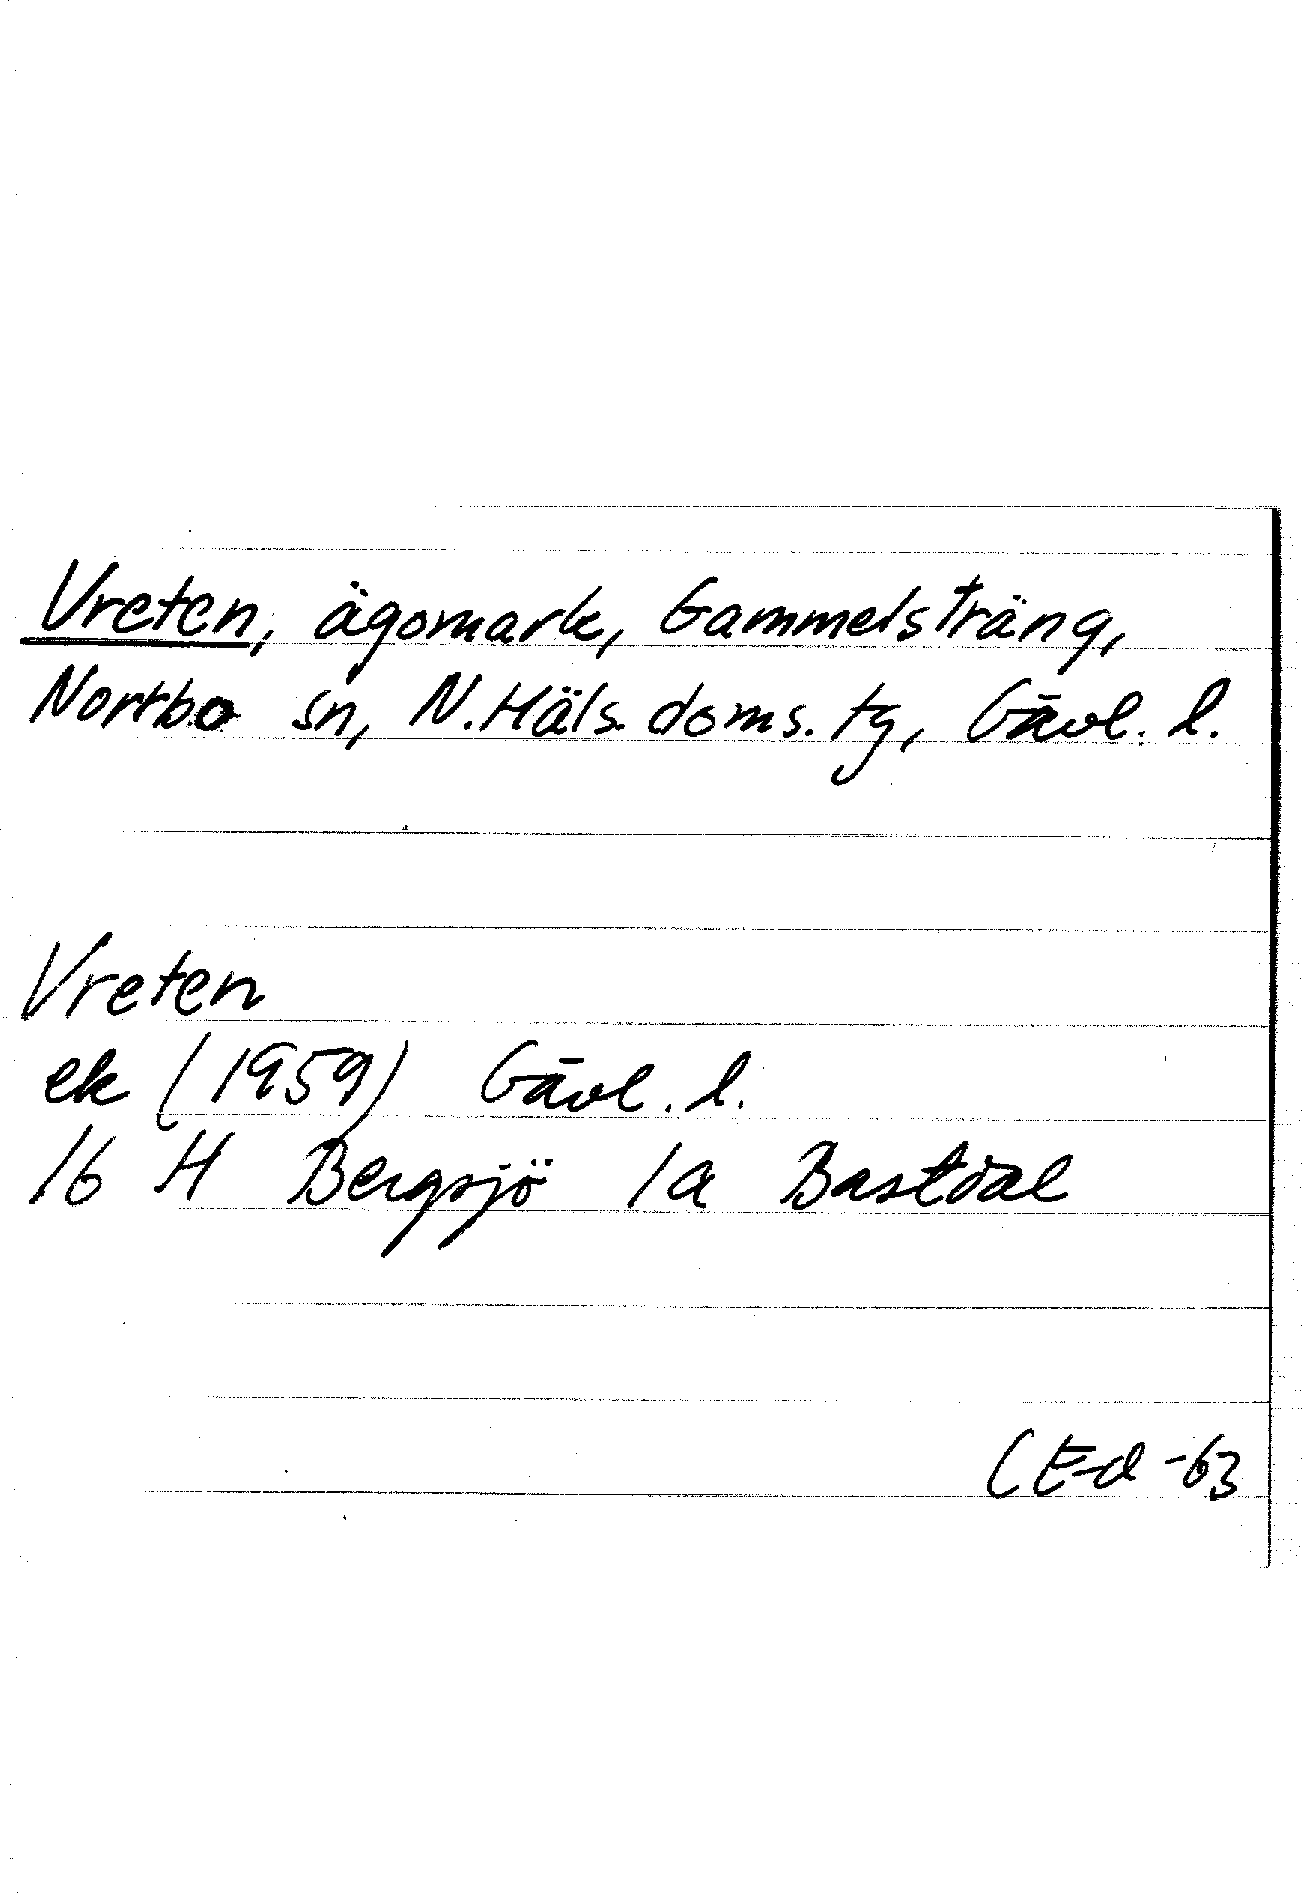 Vreten, ägomark, Gammelsträng,
Norrbo sn, N.Häls. doms. tg, Gävl. l.
Vreten
ek (1959) Gävl. l.
16 H Bergsjö 1a Bastdal
CE-d -63